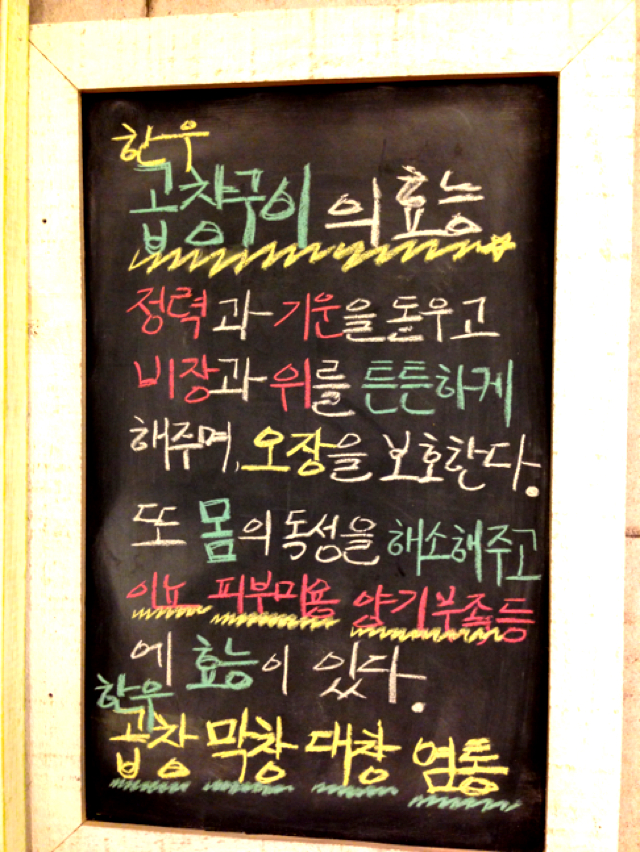 한우
곱창구이의 효능
정력과 기운을 돋우고
비장과 위를 튼튼하게
해주며, 오장을 보호한다.
또 몸의 독성을 해소해주고
이뇨 피부미용 양기부족등
에 효능이 있다.
한우
곱창 막창 대창 염통